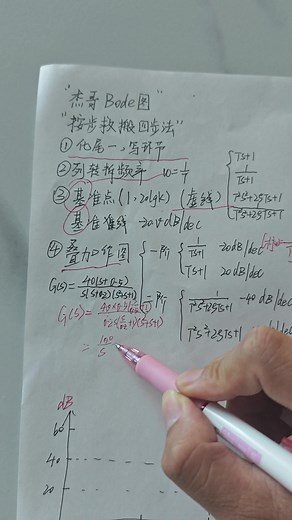 "杰哥Bode图"
"按步救搬四步法"
① 化尾一,写环节
② 列转折频率 ω=1/T
③ 基准点(1,20lgk)(虚线)
基准准线 -20v dB/dec
④ 叠加作图
TS+1
1/(TS+1)
T²S²+2ζTS+1
1/(T²S²+2ζTS+1)
一阶 { 1/(TS+1) -20dB/dec
TS+1 20dB/dec
二阶 { 1/(T²S²+2ζTS+1) -40dB/dec
T²S²+2ζTS+1
G(S)= 40(S+0.5)/(S(S+0.2)(S²+S+1))
G(S)=
= 100/S
dB
60
40
20